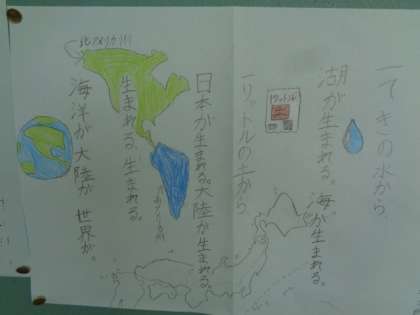 一てきの水から
湖が生まれる。海が生まれる。
一リットルの土から
日本が生まれる。大陸が生まれる。
生まれる。生まれる。
海洋が大陸が世界が。
北アメリカ